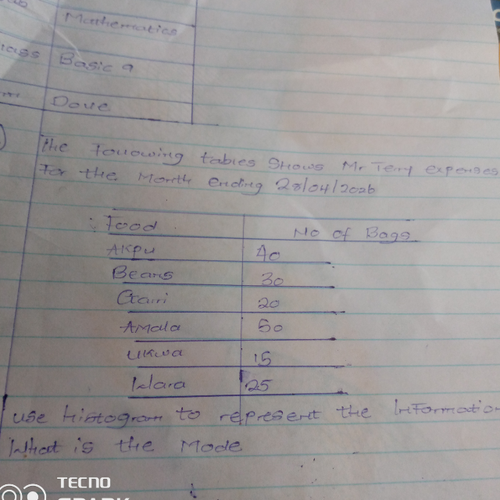 Mathematics
Basic 9
Dove
The Following tables shows Mr Terry expenses
For the Month ending 28/04/2026
Food No of Bags
Akpu 40
Beans 30
Garri 20
Amala 50
Ukwa 15
Wara 25
Use Histogram to represent the Information
What is the Mode
TECNO
SPARK